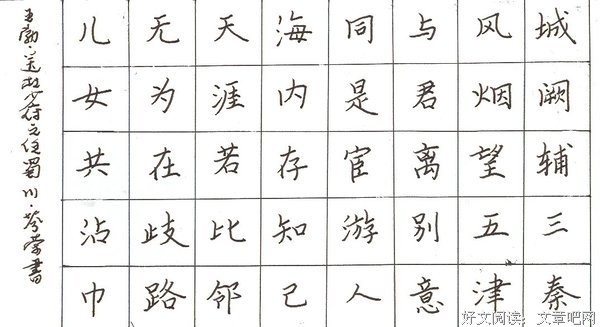 城阙辅三秦
风烟望五津
与君离别意
同是宦游人
海内存知己
天涯若比邻
无为在歧路
儿女共沾巾
王勃·送杜少府之任蜀川·荣書
好文阅读：文章吧网